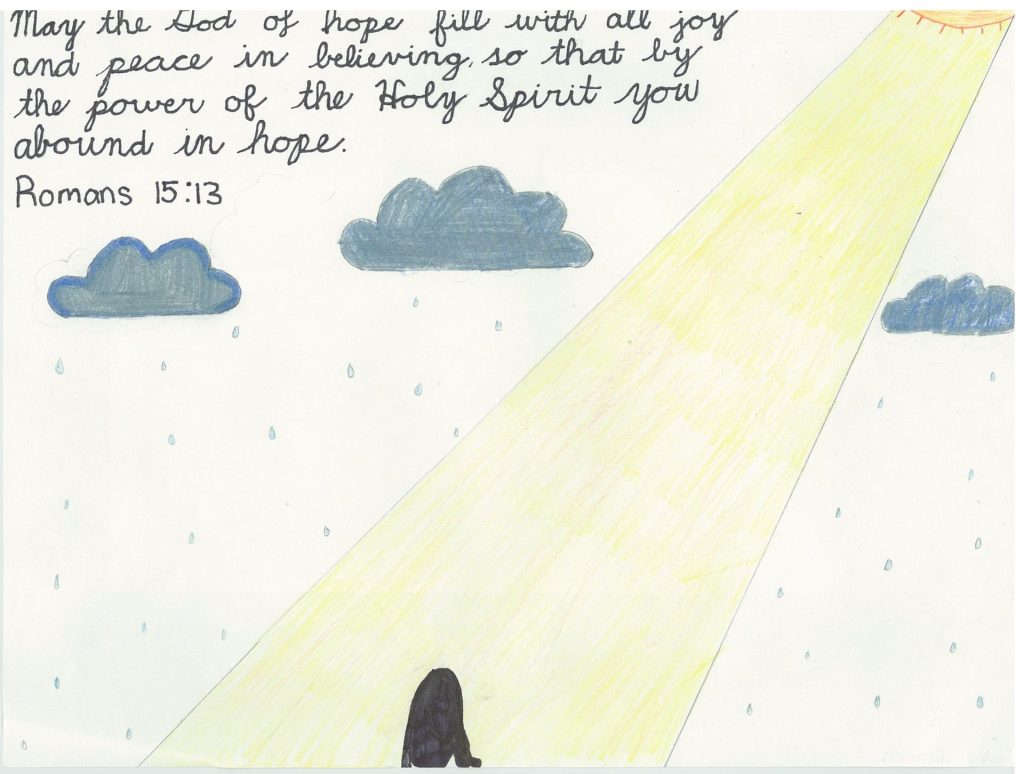 May the God of hope fill with all joy
and peace in believing, so that by
the power of the Holy Spirit you
abound in hope.
Romans 15:13